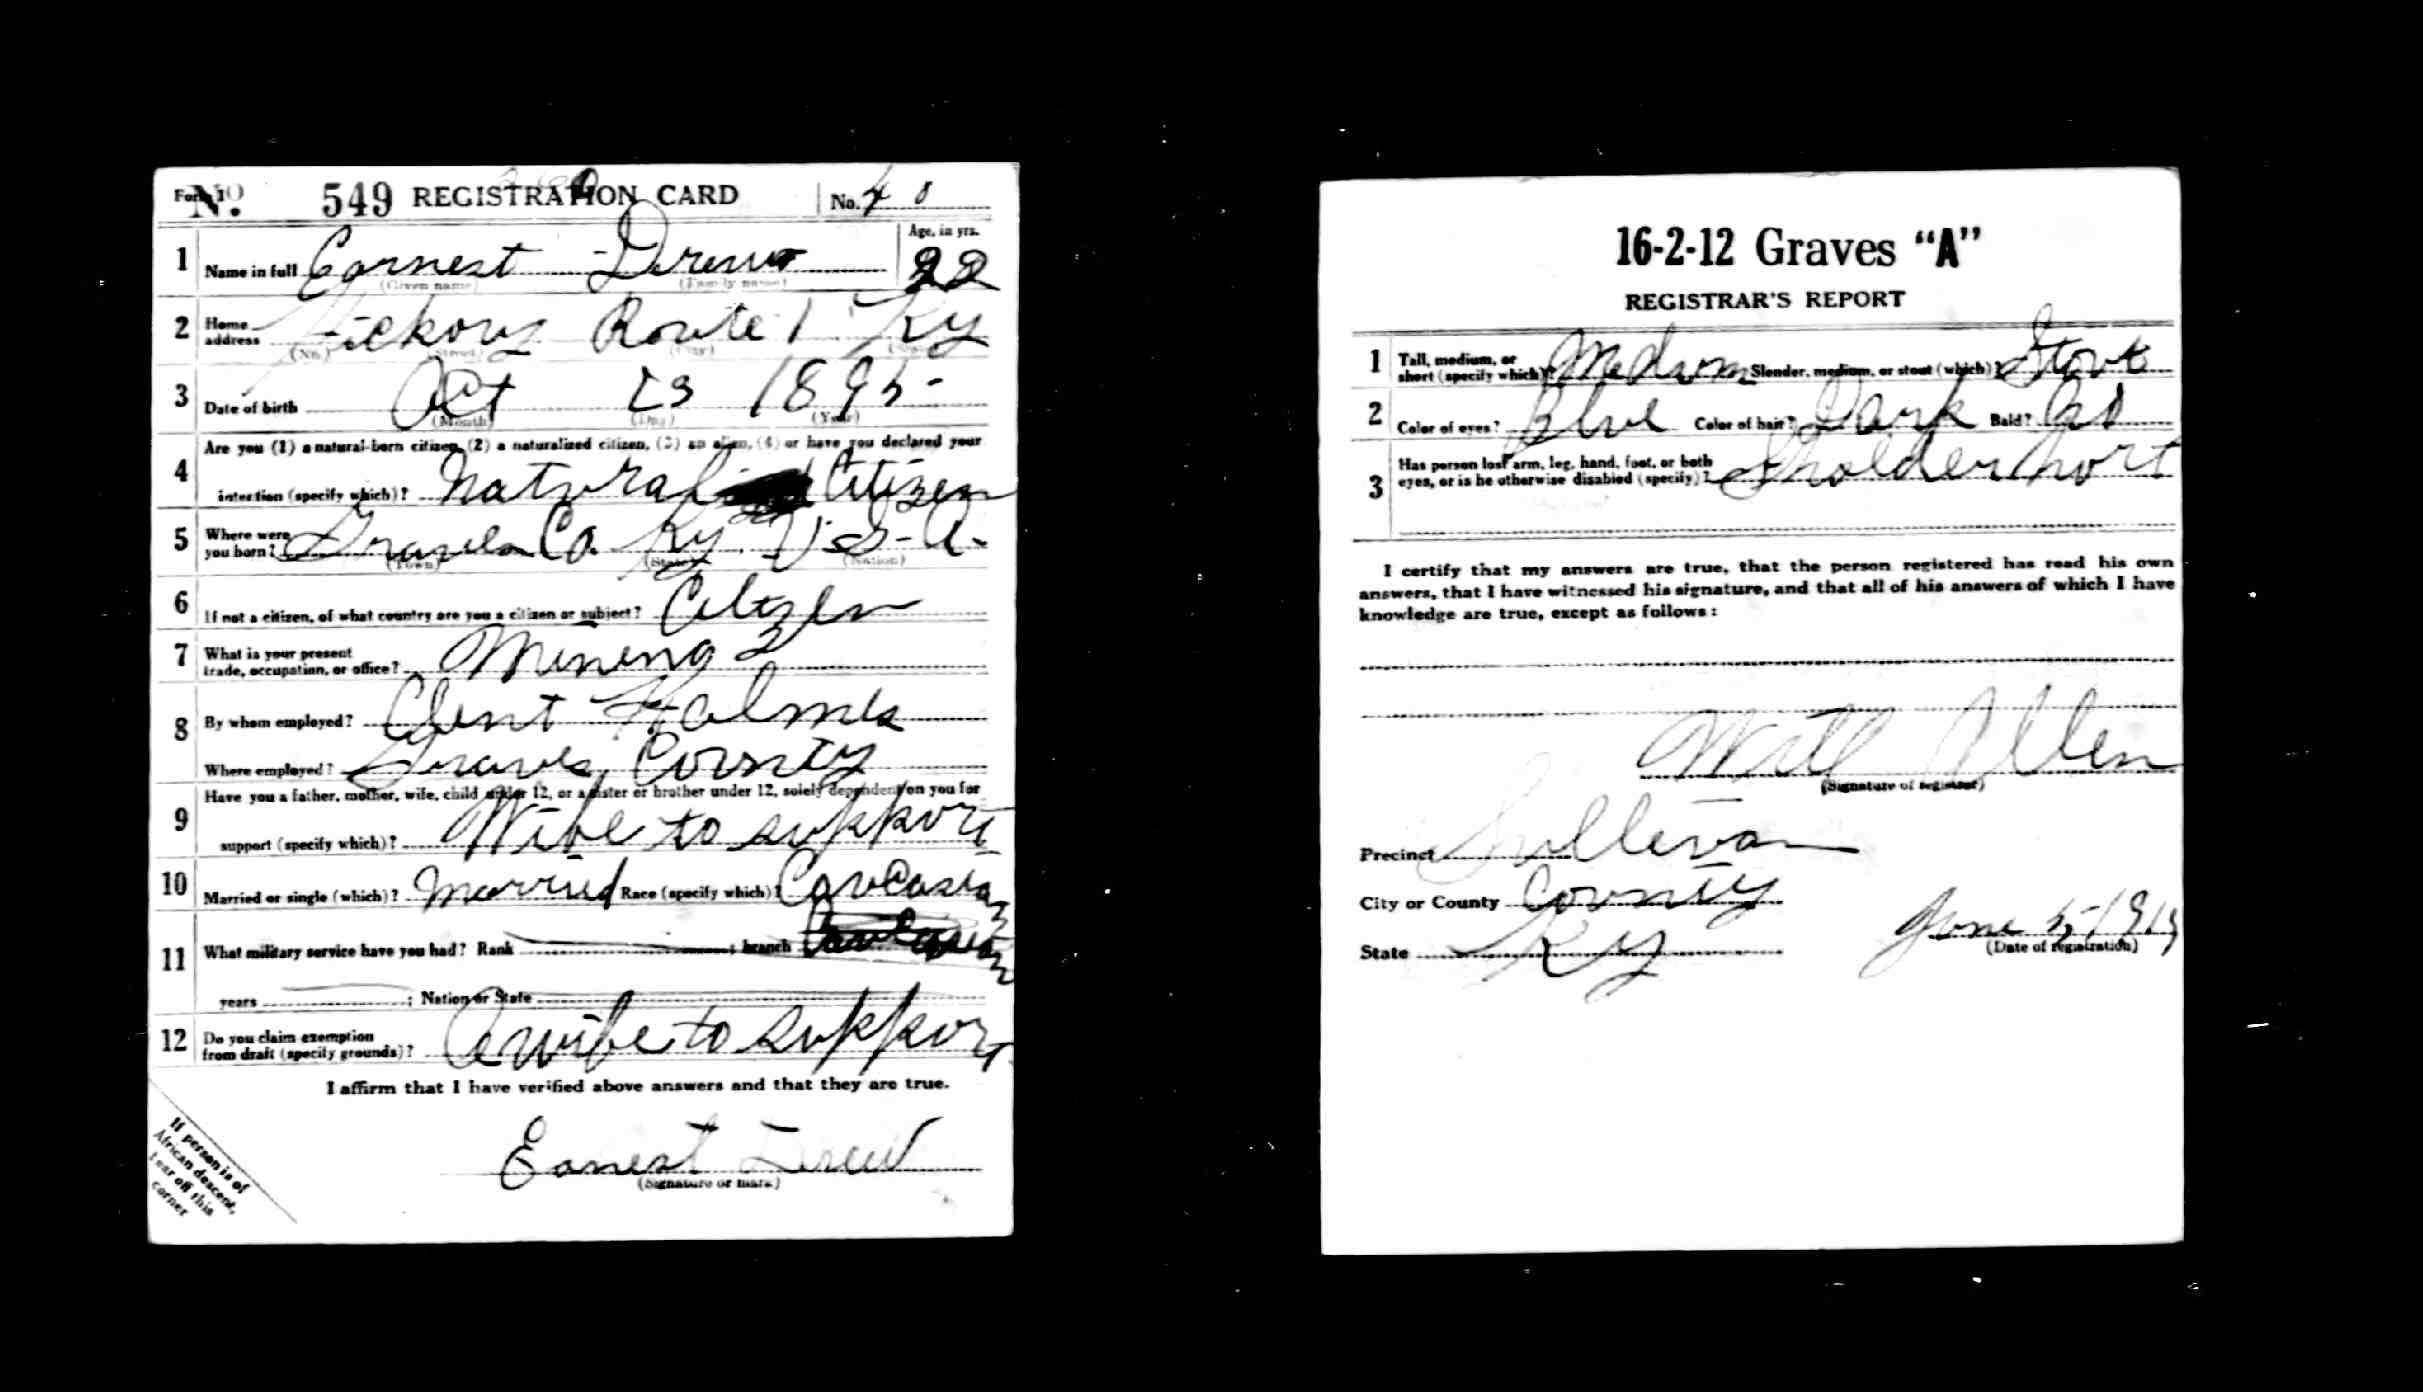 Form 1 No. 549 REGISTRATION CARD No. 40
Age, in yrs.
1 Name in full Earnest Drew 22
(Given name) (Family name)
2 Home address Hickory Route 1 Ky
(No.) (Street) (City) (State)
3 Date of birth Oct 23 1895
(Month) (Day) (Year)
4 Are you (1) a natural-born citizen, (2) a naturalized citizen, (3) an alien, (4) or have you declared your
intention (specify which)? Natural Citizen
5 Where were you born? Graves Co. Ky. U-S-A-
(Town) (State) (Nation)
6 If not a citizen, of what country are you a citizen or subject? Citzen
7 What is your present
trade, occupation, or office? Mining
8 By whom employed? Clent Holmes
Where employed? Graves County
9 Have you a father, mother, wife, child under 12, or a sister or brother under 12, solely dependent on you for
support (specify which)? Wife to support
10 Married or single (which)? Married Race (specify which)? Caucasian
11 What military service have you had? Rank ; branch
years ; Nation or State
12 Do you claim exemption
from draft (specify grounds)? A wife to support
I affirm that I have verified above answers and that they are true.
Earnest Drew
(Signature or mark)
If person is of
African descent,
tear off this
corner
16-2-12 Graves "A"
REGISTRAR'S REPORT
1 Tall, medium, or
short (specify which)? Medium Slender, medium, or stout (which)? Stout
2 Color of eyes? Blue Color of hair? Dark Bald?
3 Has person lost arm, leg, hand, foot, or both
eyes, or is he otherwise disabled (specify)? Sholder hurt
I certify that my answers are true, that the person registered has read his own
answers, that I have witnessed his signature, and that all of his answers of which I have
knowledge are true, except as follows:
Will Allen
(Signature of registrar)
Precinct Sullivan
City or County County
State Ky June 5-1917
(Date of registration)